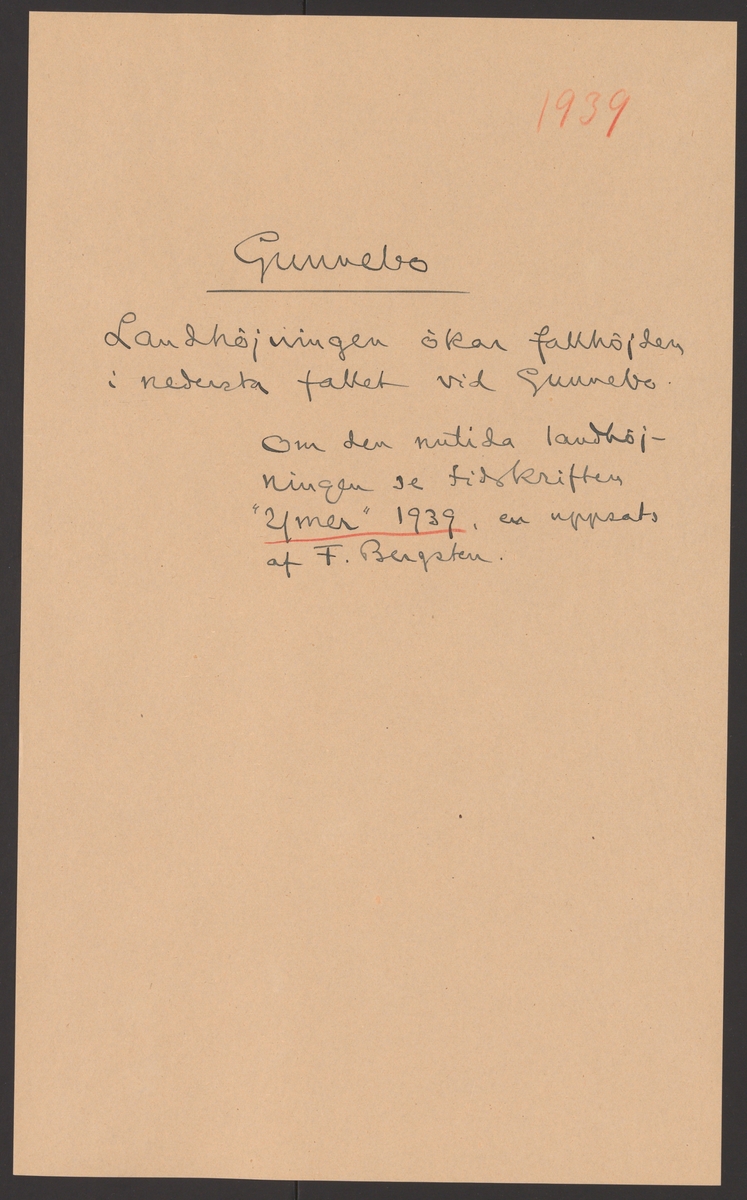 1939
Gunnebo
Landhöjningen ökar fallhöjden
i nedersta fallet vid Gunnebo.
Om den nutida landhöj-
ningen se tidskriften
"Ymer" 1939, en uppsats
af F. Bergsten.